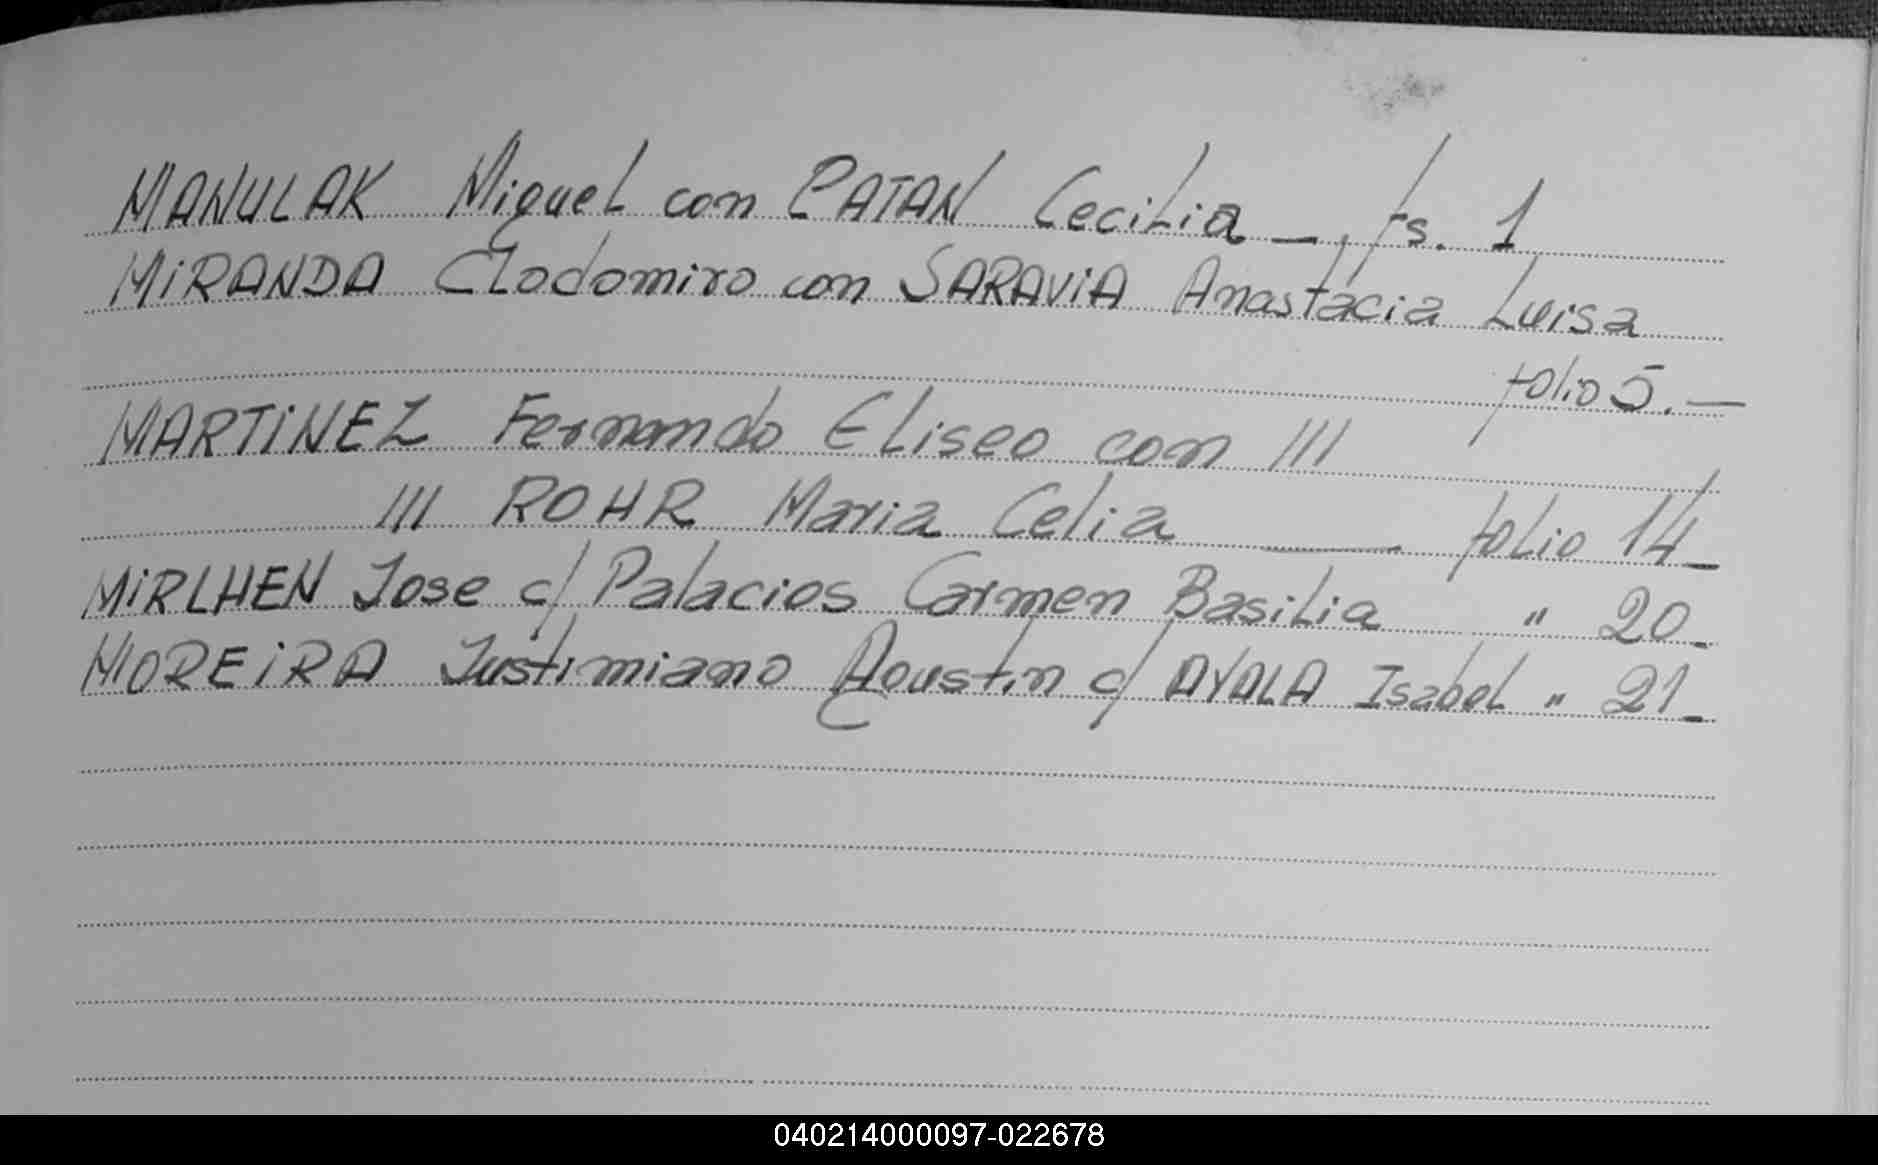 MANULAK Miguel con PATAN Cecilia —, fs. 1
MiRANDA Clodomiro con SARAViA Anastacia Luisa
folio 5. —
MARTiNEZ Fernando Eliseo con ///
/// ROHR Maria Celia —— folio 14_
MiRLHEN Jose c/ Palacios Carmen Basilia " 20_
MOREiRA Justimiano Agustin c/ AYALA Isabel " 21_
040214000097-022678